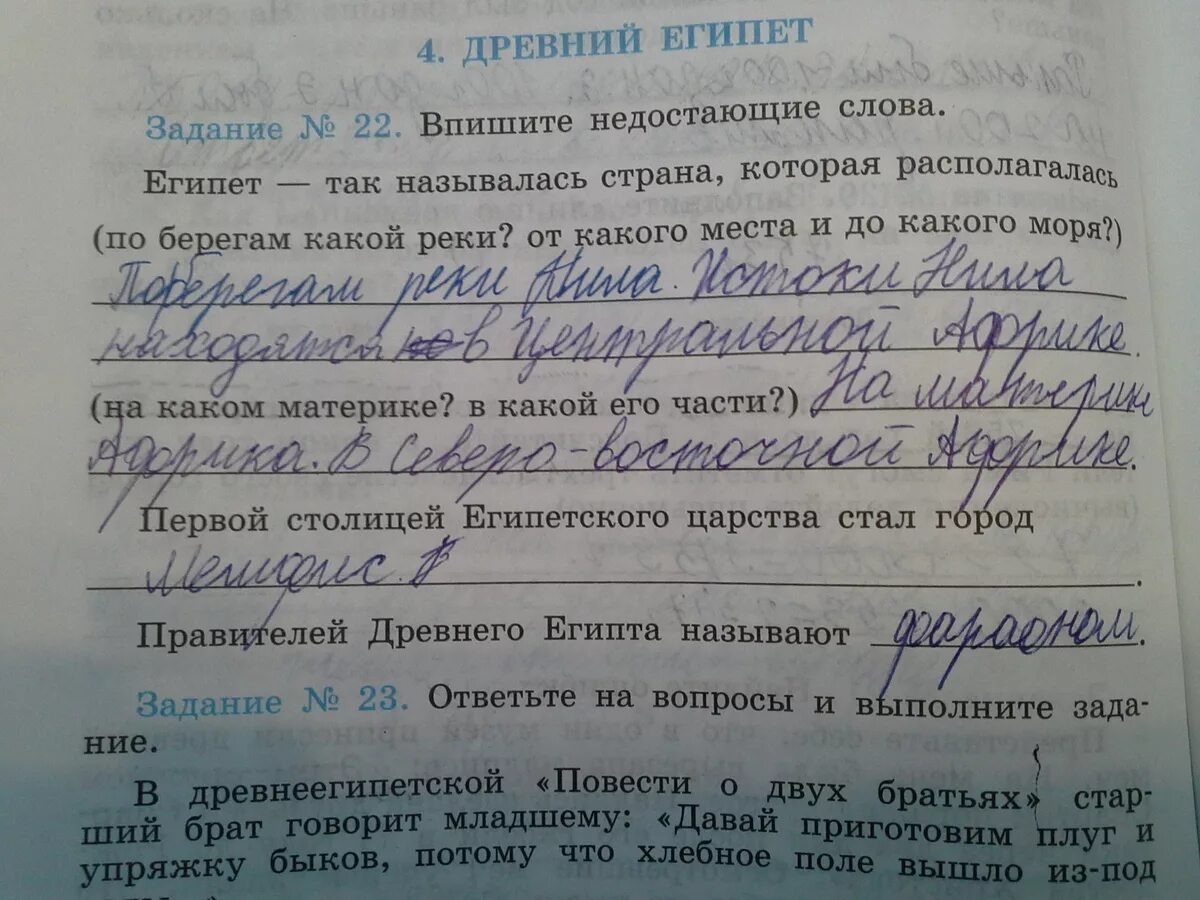 4. ДРЕВНИЙ ЕГИПЕТ
Задание № 22. Впишите недостающие слова.
Египет — так называлась страна, которая располагалась
(по берегам какой реки? от какого места и до какого моря?)
По берегам реки Нила. Истоки Нила
находятся в Центральной Африке.
(на каком материке? в какой его части?) На материк
Африка. В Северо-восточной Африке.
Первой столицей Египетского царства стал город
Мемфис. В
Правителей Древнего Египта называют фараоном.
Задание № 23. Ответьте на вопросы и выполните зада-
ние.
В древнеегипетской «Повести о двух братьях» стар-
ший брат говорит младшему: «Давай приготовим плуг и
упряжку быков, потому что хлебное поле вышло из-под